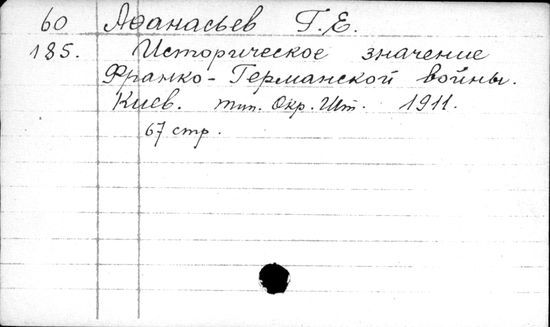 60 Афанасьев Г. Е.
185. Историческое значение
Франко-Германской войны.
Киев. тип. Окр. Шт. 1911.
67 стр.